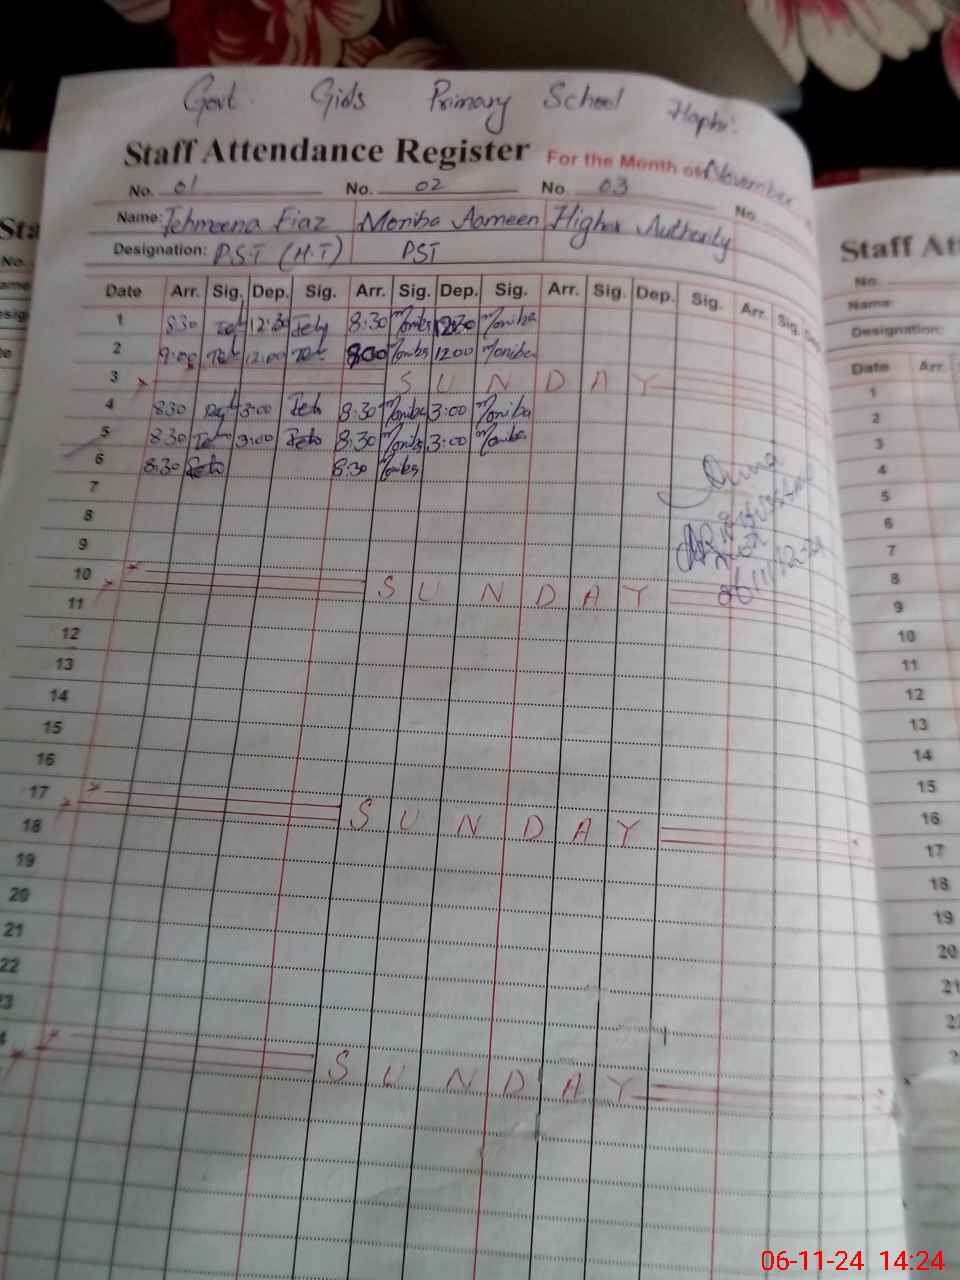 Govt. Girls Primary School
Staff Attendance Register For the Month of November
No. 01 No. 02 No. 03 No.
Name: Tehmeena Fiaz Moniba Aameen Higher Authority
Designation: P.S.T (H.T) PST
Date Arr. Sig. Dep. Sig. Arr. Sig. Dep. Sig. Arr. Sig. Dep. Sig. Arr. Sig. Dep.
1 8:30 12:30 8:30 12:30 Moniba
2 9:00 12:00 12:00 Moniba
3 SUNDAY
4 830 3:00 8:30 Moniba 3:00 Moniba
5 8:30 3:00 8:30 3:00 Moniba
6 8:30 8:30
7
8
9
10 SUNDAY
11
12
13
14
15
16
17 SUNDAY
18
19
20
21
22
23
4 SUNDAY
Staff Att
No.
Name:
Designation:
Date Arr.
1
2
3
4
5
6
7
8
9
10
11
12
13
14
15
16
17
18
19
20
21
06-11-24 14:24